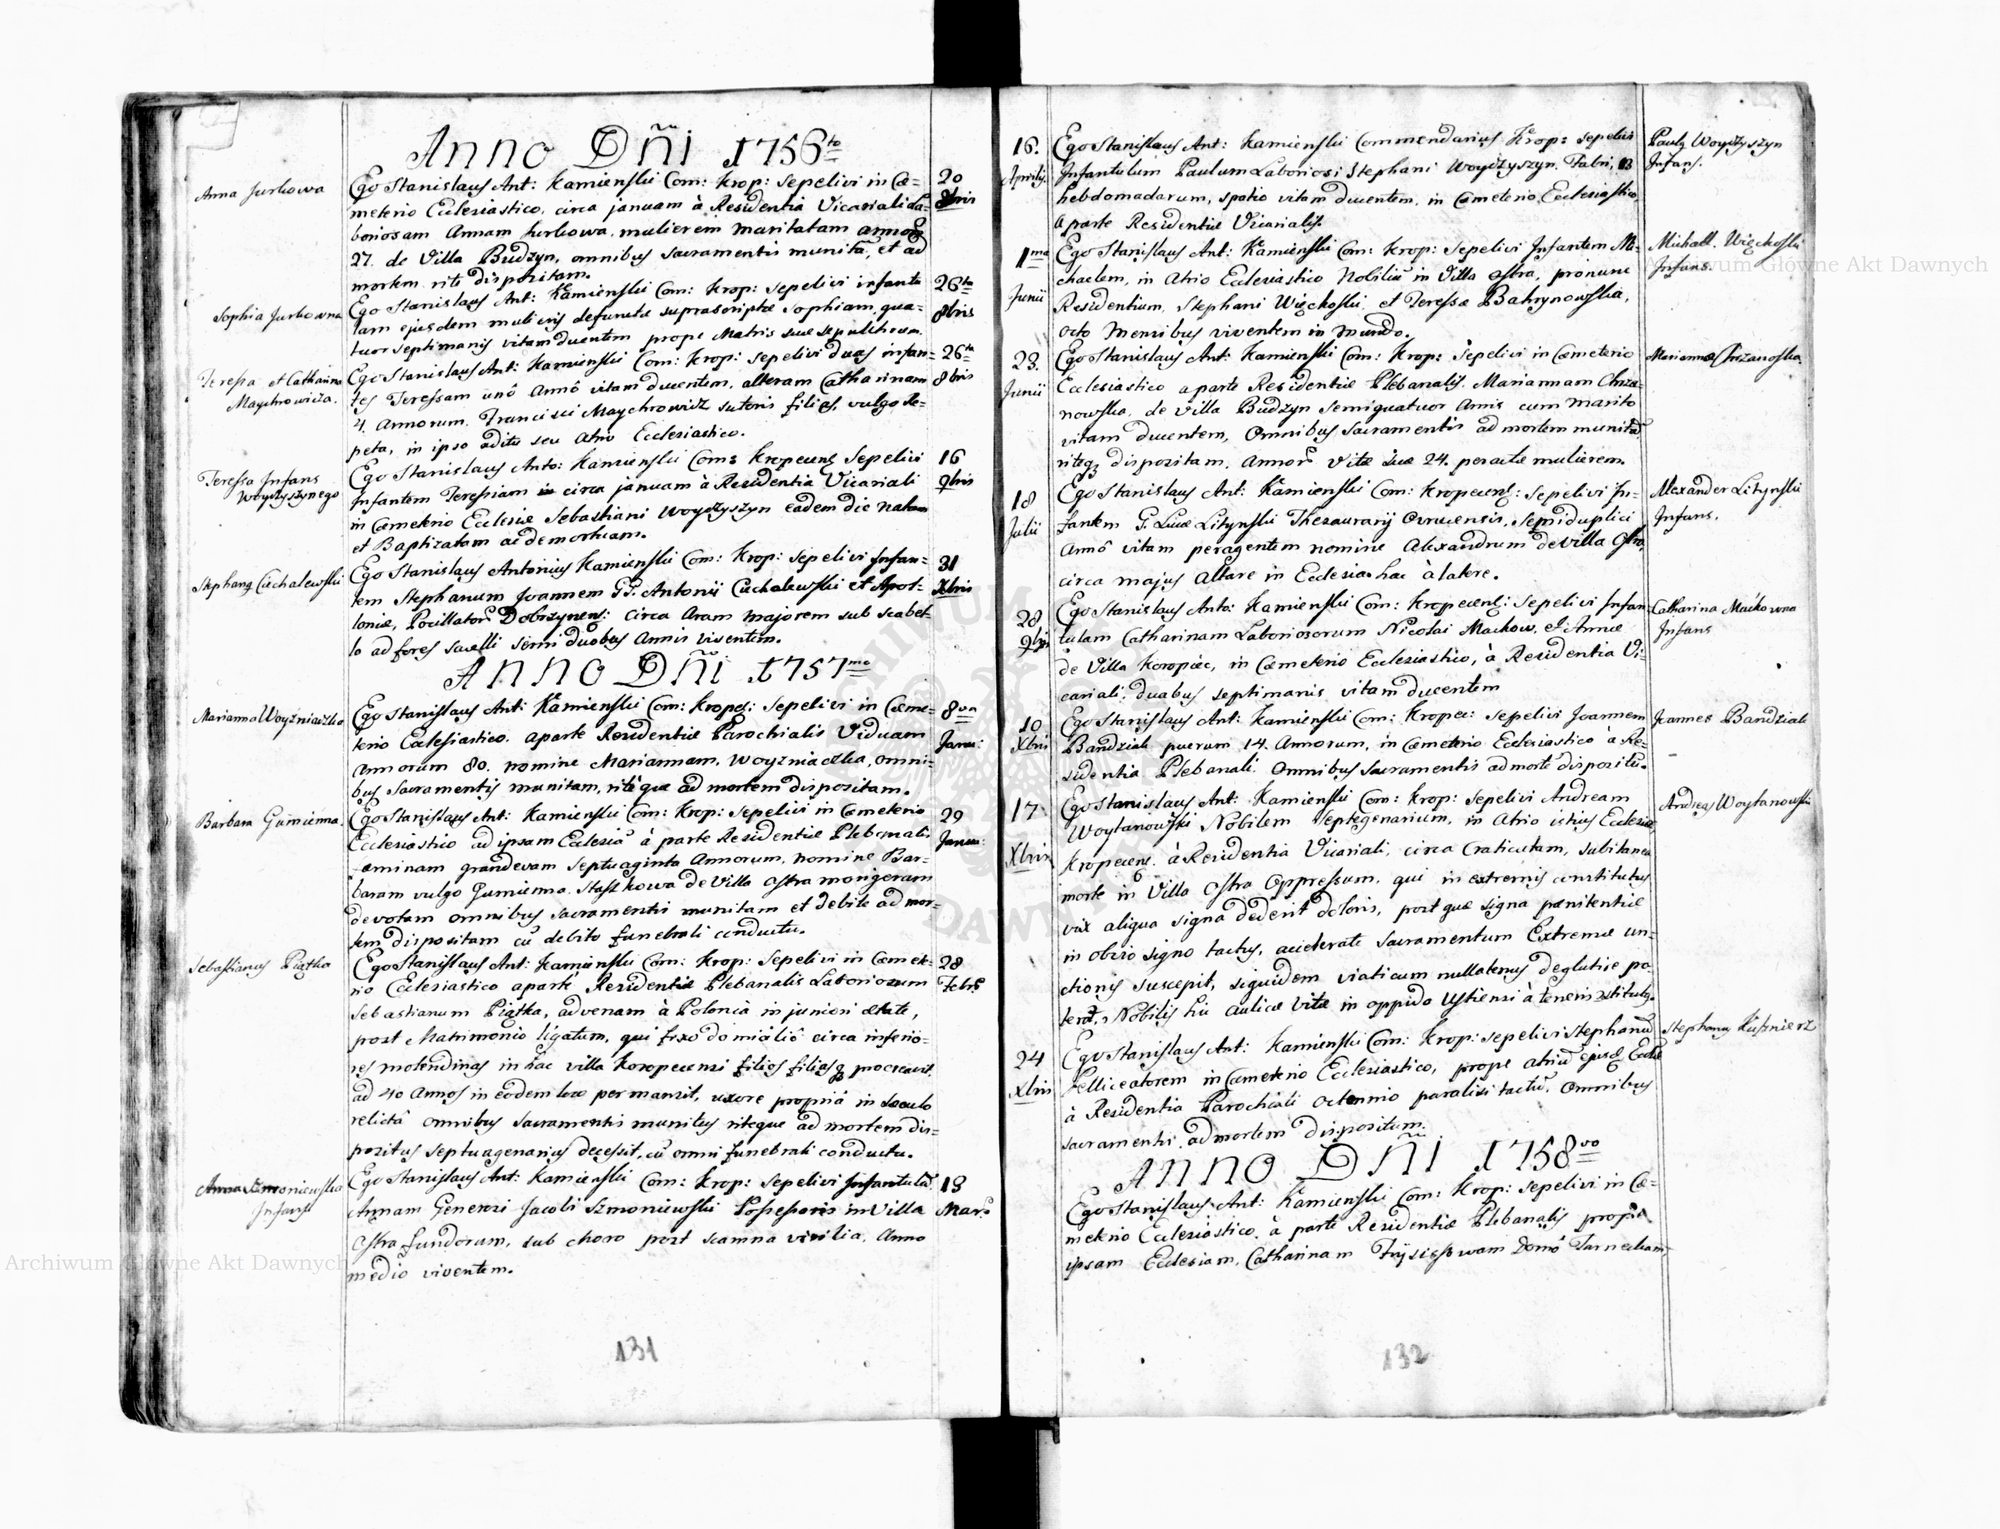 Anno Dñi 1756to
Anna Jurkowa
Ego Stanislaus Ant: Kamienski Com: Krop: sepelivi in Cœ=
meterio Ecclesiastico, circa januam à Residentia Vicariali La=
boriosam Annam Jurkowa, mulierem maritatam annor
27. de Villa Budzyn, omnibus sacramentis munitã, et ad
mortem rite dispositam.
20
8bris
Sophia Jurkowna
Ego Stanislaus Ant: Kamienski Com: Krop: sepelivi infantu
lam ejusdem mulieris defunctæ suprascriptæ Sophiam, qua=
tuor septimanis vitam ducentem prope Matris suæ sepulchrum.
26ta
8bris
Teressa et Catharina
Maychrowicza.
Ego Stanislaus Ant: Kamienski Com: Krop: sepelivi duas infan=
tes Teressam unô Annô vitam ducentem, alteram Catharinam
4. Annorum. Francisci Maychrowicz sutoris filias, vulgo Re=
peta, in ipso aditu seu Atrio Ecclesiastico.
26ta
8bris
Teressa Infans
Woyczyszynego
Ego Stanislaus Anto: Kamienski Com: Kropecens sepelivi
Infantem Teressiam in circa januam à Residentia Vicariali
in Cæmeterio Ecclesiæ Sebastiani Woyczyszyn eadem die natam
et Baptizatam ac demortuam.
16
9bris
Stephanus Ciechalewski
Ego Stanislaus Antonius Kamienski Com: Krop: sepelivi Infan=
tem Stephanum Joannem GG. Antonii Ciechalewski et Apol=
loniæ, Pocillator Dobrzynens: circa Aram majorem sub scabel=
lo ad fores sacelli semi duobus Annis viventem.
31
Xbris
ANNO Dñi 1757mo
Marianna Woyzniaczka
Ego Stanislaus Ant: Kamienski Com: Kropes: sepelivi in Cæme=
terio Ecclesiastico. a parte Residentiæ Parochialis Viduam
Annorum 80. nomine Mariannam, Woyzniaczka, omni=
bus Sacramentis munitam, ritèque ad mortem dispositam.
8va
Janu:
Barbara Gumienna.
Ego Stanislaus Ant: Kamienski Com: Krop: sepelivi in Cæmeterio
Ecclesiastico ad ipsam Ecclesiã à parte Residentiæ Plebanalis
eminam grandevam septuaginta Annorum, nomine Bar=
baram vulgo Gumienna. Staszkowa de Villa Ostra morigeram
devotam omnibus sacramentis munitam et debite ad mor=
tem dispositam cũ debito funebrali conductu.
29
Januar:
Sebastianus Piątka
Ego Stanislaus Ant: Kamienski Com: Krop: sepelivi in Cœmete=
rio Ecclesiastico a parte Residentiæ Plebanalis Laboriosum
Sebastianum Piątka, advenam à Polonia in juniori ætate,
post Matrimonio ligatum, qui fixo domicilio circa inferio=
res molendinas in hac villa Koropecensi filios filiasq procreavit.
ad 40 Annos in eodem loco permansit, uxore propriâ in sæculo
relictâ omnibus sacramentis munitus riteque ad mortem dis=
positus septuagenarius decessit, cũ omni funebrali conductu.
28
Febr:
Anna Szmoniewska
Infans
Ego Stanislaus Ant: Kamienski Com: Krop: sepelivi Infantulã
Annam Generosi Jacobi Szmoniewski Possessoris in Villa
Ostra fundorum, sub choro post scamna virilia, Anno
medio viventem.
18
Mar:
131
16.
Aprilis.
Ego Stanislaus Ant: Kamienski Commendarius Krop: sepelivi
Infantulum Paulum Laboriosi Stephani Woyczyszyn. Fabri, 13
hebdomadarum, spatio vitam ducentem, in Cœmeterio Ecclesiastico
a parte Residentiæ Vicarialis.
Paulg Woyczyszyn
Infans.
1ma
Junii
Ego Stanislaus Ant: Kamienski Com: Krop: sepelivi Infantem Mi=
chaelem, in Atrio Ecclesiastico Nobiliũ in Villa Ostra, pronunc
Residentium, Stephani Więckoski et Teressæ Bahrynowska,
octo Mensibus viventem in mundo.
Michael. Więckoski
Infans.
23.
Junii
Ego Stanislaus Ant: Kamienski Com: Krop: sepelivi in Cœmeterio
Ecclesiastico a parte Residentiæ Plebanalis. Mariannam Chrza=
nowska, de Villa Budzyn semiquatuor Annis cum marito
vitam ducentem, Omnibus sacramentis ad mortem munitã
riteqz dispositam, Annor Vitæ suæ 24. peractæ mulierem.
Marianna Chrzanoska
18
Julii
Ego Stanislaus Ant: Kamienski Com: Kropecens: sepelivi In=
fantem G. Lucæ Litynski Thesaurarij Owrucensis, semiduplici
Annô vitam peragentem nomine Alexandrum de Villa Ostra,
circa majus Altare in Ecclesia hac à latere.
Alexander Litynski
Infans.
28
9bris
Ego Stanislaus Anto: Kamienski Com: Kropecens: sepelivi Infan=
tulam Catharinam Laboriosorum Nicolai Mackow, et Annæ
de Villa Koropiec, in Cœmeterio Ecclesiastico, à Residentia Vi=
cariali, duabus septimanis vitam ducentem
Catharina Maćkowna
Infans
10
Xbris
Ego Stanislaus Ant: Kamienski Com: Kropec: sepelivi Joannem
Bandziak puerum 14. Annorum, in Cœmeterio Ecclesiastico à Re=
sidentia Plebanali Omnibus sacramentis ad morte dispositũ.
Joannes Bandziak
17.
Xbris
Ego Stanislaus Ant: Kamienski Com: Krop: sepelivi Andream
Woytanowski Nobilem septegenarium, in Atrio istius Ecclesiæ
Kropecens: à Residentia Vicariali, circa Craticulam, subitanea
morte in Villa Ostra Oppressum, qui in extremis constitutus
vix aliqua signa dederit doloris, post quæ signa pœnitentiæ
in obrio signo tactus, accelerate sacramentum Extremæ un=
ctionis suscepit, siquidem viaticum nullatenus deglutire po=
terat, Nobilis hic aulicæ vitæ in oppido Ustiensi à teneris
Andreas Woytanowski
24
Xbris
Ego Stanislaus Ant: Kamienski Com: Krop: sepelivi Stephanũ
Pelliceatorem in Cœmeterio Ecclesiastico, prope atriũ ejusd Eccle
à Residentia Parochiali octennio paralisi tactũ, Omnibus
sacramentis, ad mortem dispositum.
Stephanus Kusznierz
ANNO DÑI 1758vo
Ego Stanislaus Ant: Kamienski Com: Krop: sepelivi in Cæ=
meterio Ecclesiastico, à parte Residentiæ Plebanalis prope
ipsam Ecclesiam, Catharinam
132
Archiwum Główne Akt Dawnych
Archiwum Główne Akt Dawnych